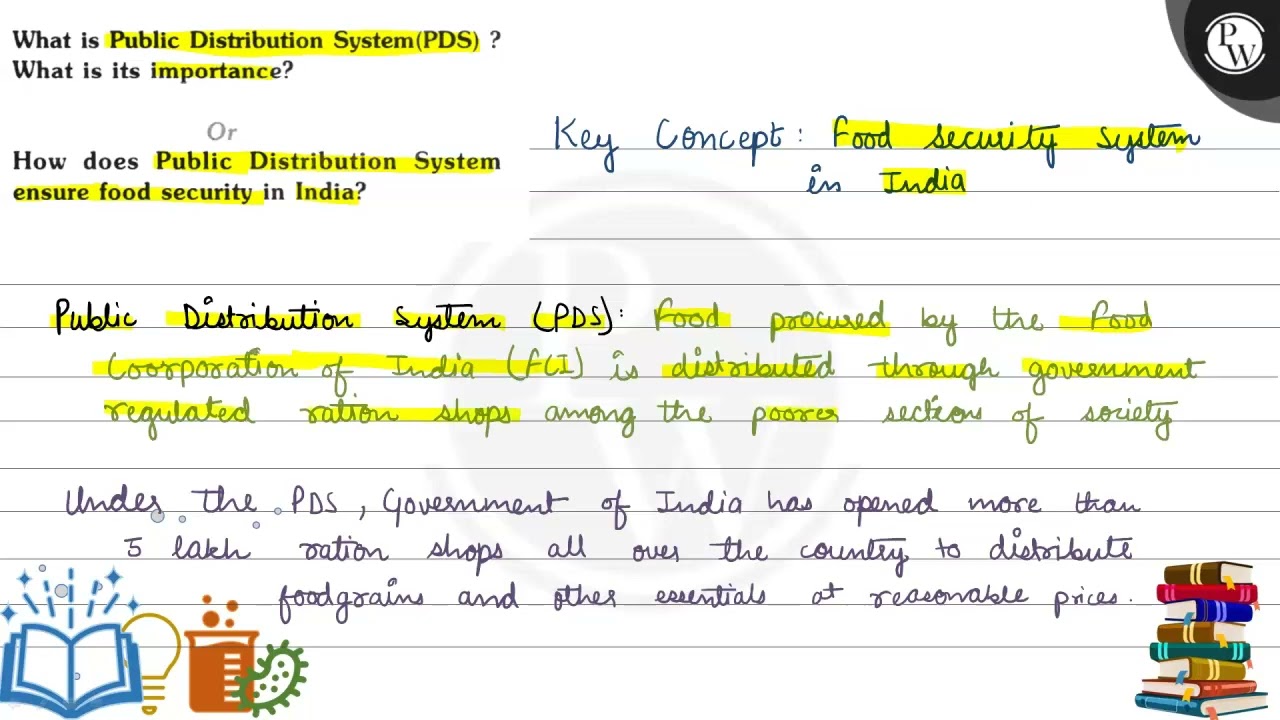 What is Public Distribution System(PDS) ?
What is its importance?
Or
How does Public Distribution System
ensure food security in India?
PW
Key Concept: Food security system
in India
Public Distribution System (PDS): Food procured by the Food
Coorporation of India (FCI) is distributed through government
regulated ration shops among the poorer sections of society
Under the PDS, Government of India has opened more than
5 lakh ration shops all over the country to distribute
foodgrains and other essentials at reasonable prices.